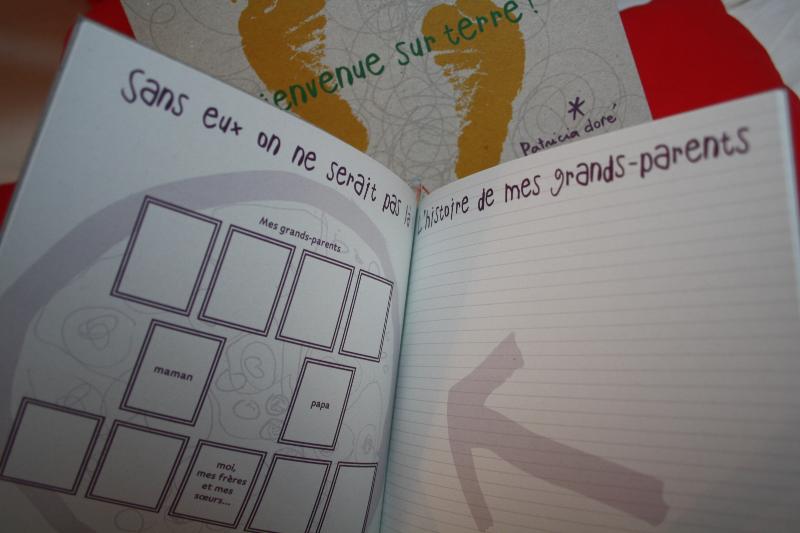 Bienvenue sur terre !
Patricia doré
Sans eux on ne serait pas là
Mes grands-parents
maman
papa
moi,
mes frères
et mes
sœurs...
L'histoire de mes grands-parents